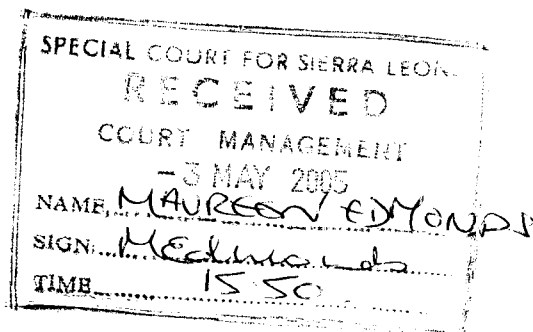 SPECIAL COURT FOR SIERRA LEONE
RECEIVED
COURT MANAGEMENT
- 3 MAY 2005
NAME MAUREEN EDMONDS
SIGN MEdmonds
TIME 15 50